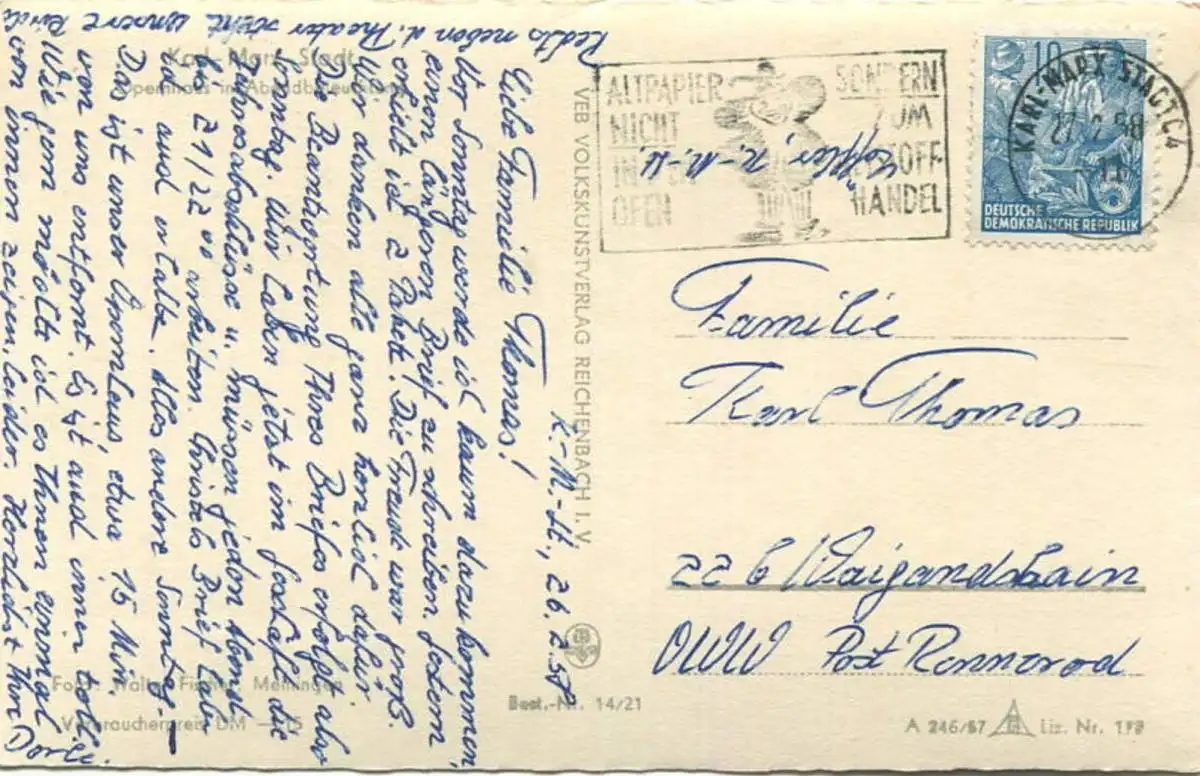 Karl-Marx-Stadt
Opernhaus in Abendbeleuchtung
K.-M.-St., 26.2.58
Liebe Familie Thomas!
Vor Sonntag werde ich kaum dazu kommen,
einen längeren Brief zu schreiben. Gestern
erhielt ich 2 Pakete. Die Freude war groß.
Wir danken alle ganz herzlich dafür.
Die Beantwortung Ihres Briefes erfolgt aber
Sonntag. Wir haben jetzt im Geschäft die
"Jahresabschlüsse" u. müssen jeden Abend
bis 21/22 00 arbeiten. Christels Brief habe
ich auch erhalten. Alles andere Sonntag.
Das ist unser Opernhaus, etwa 15 Min.
von uns entfernt. Es ist auch innen toll.
Wie gern möchte ich es Ihnen einmal
von innen zeigen, leider. Herzlichst Ihre
Rechts neben d. Theater steht unsere
n.-M.-St.
ALTPAPIER
NICHT
IN DEN
OFEN
SONDERN
ZUM
HANDEL
KARL-MARX-STADT C4
27.2.58
10
DEUTSCHE
DEMOKRATISCHE REPUBLIK
VEB VOLKSKUNSTVERLAG REICHENBACH I. V.
Familie
Karl Thomas
22 b Waigandshain
ÜWW Post Rennerod
Foto: Walter Fischer, Meiningen
Verbraucherpreis DM —,15
Best.-Nr. 14/21
A 246/57 Liz. Nr.